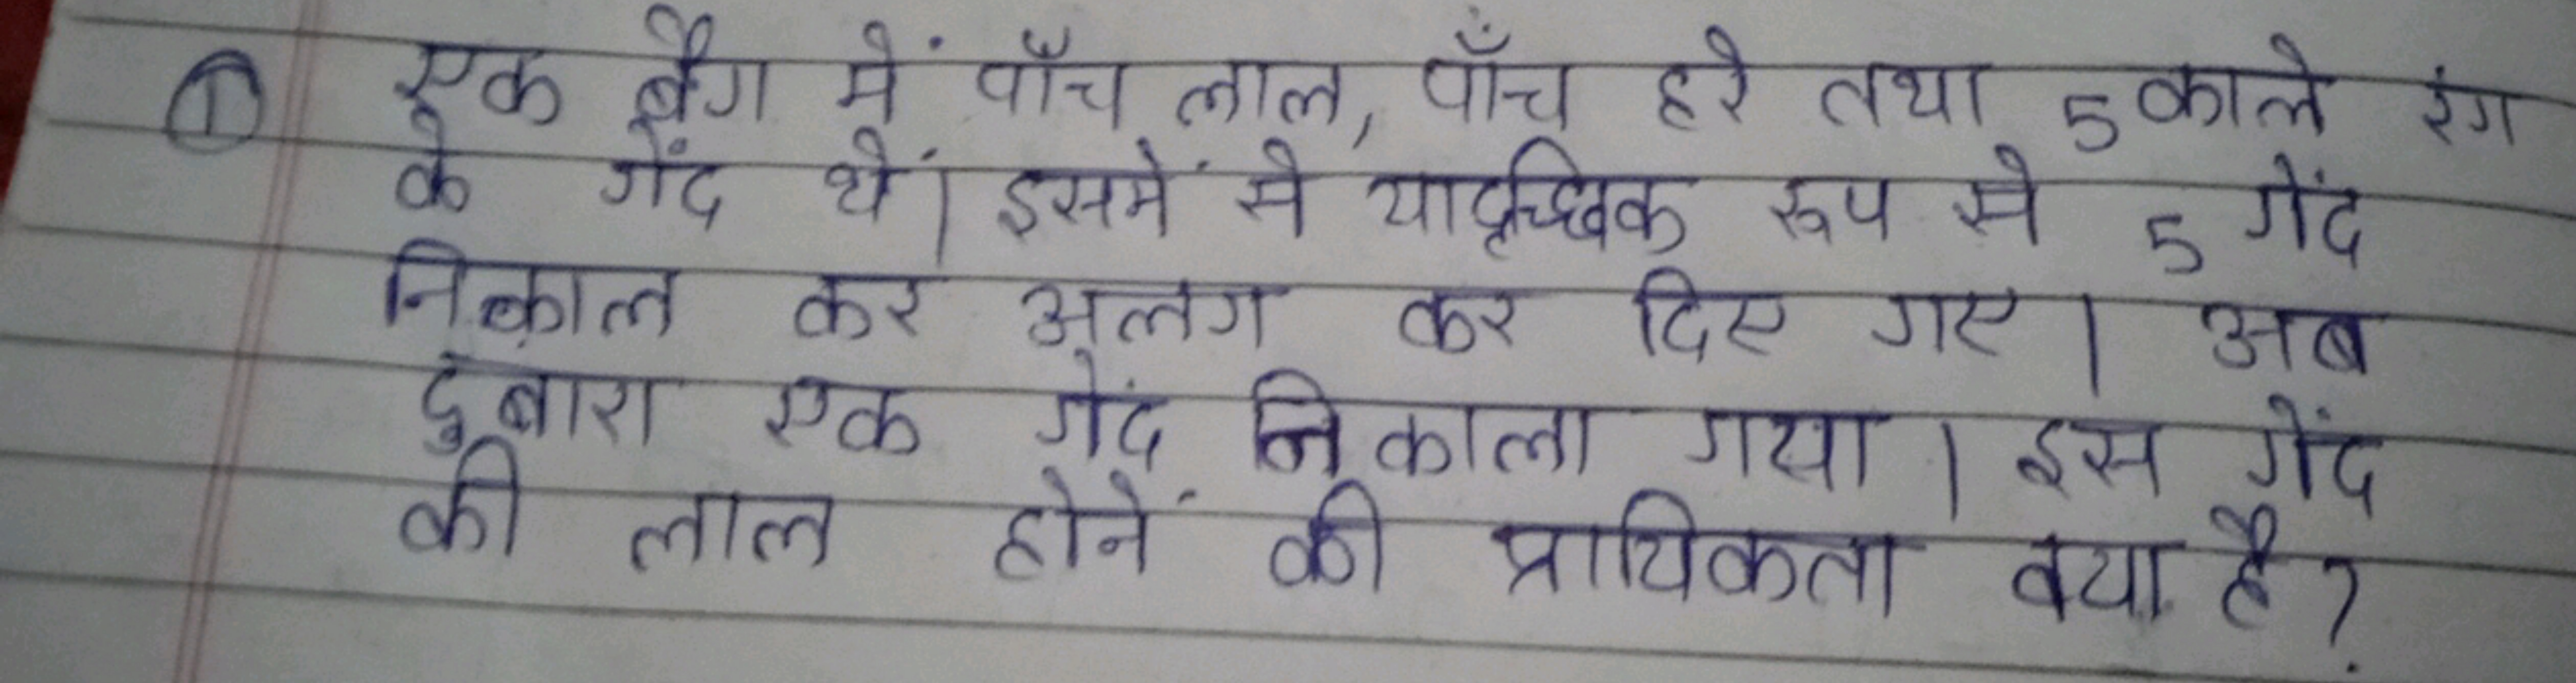 ① एक बैग में पाँच लाल, पाँच हरे तथा 5 काले रंग
के गेंद थें। इसमें से यादृच्छिक रूप से 5 गेंद
निकाल कर अलग कर दिए गए। अब
दुबारा एक गेंद निकाला गया। इस गेंद
की लाल होनें की प्रायिकता क्या है?